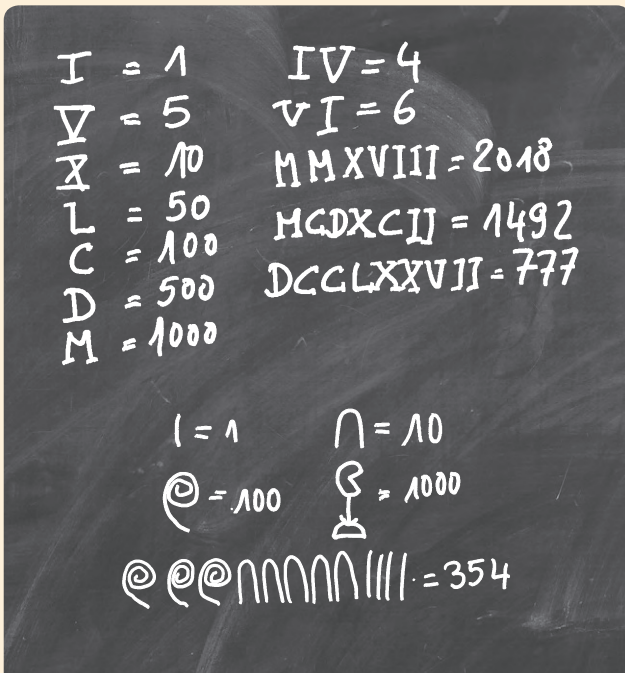 I = 1
V = 5
X = 10
L = 50
C = 100
D = 500
M = 1000
IV = 4
VI = 6
MMXVIII = 2018
MCDXCII = 1492
DCCLXXVII = 777
𓏺 = 1
𓎆 = 10
𓍢 = 100
𓆼 = 1000
𓍢𓍢𓍢𓎆𓎆𓎆𓎆𓎆𓏺𓏺𓏺𓏺 = 354